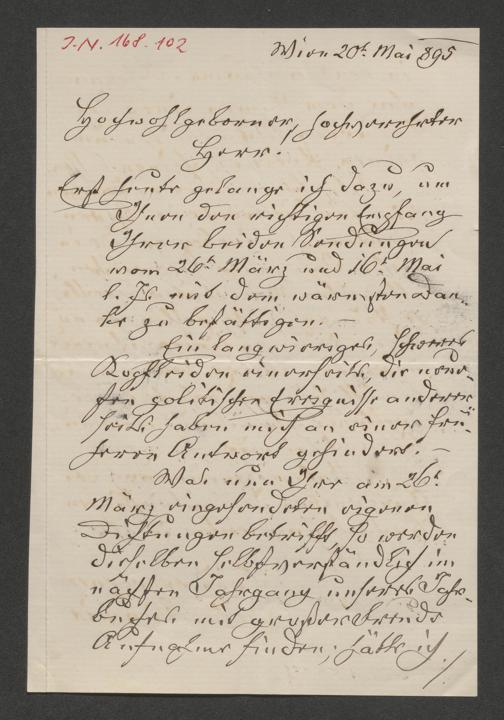 J.N. 168.102
Wien 20t. Mai 895
Hochwohlgeborner, hochverehrter
Herr!
Erst heute gelange ich dazu, um
Ihnen den richtigen Empfang
Ihrer beiden Sendungen
vom 26t. März und 16t. Mai
l. Js. mit dem wärmsten Dan-
ke zu bestättigen. —
Ein langwieriges, schweres
Kopfleiden einerseits, die neue-
sten politischen Ereignisse anderer
seits haben mich an einer frü-
heren Antwort gehindert. —
Was nun Ihre am 26t.
März eingesendeten eigenen
Dichtungen betrifft, so werden
dieselben selbstverständlich im
nächsten Jahrgang unseres Jahr-
buches mit großer Freude
Aufnahme finden; hätte ich